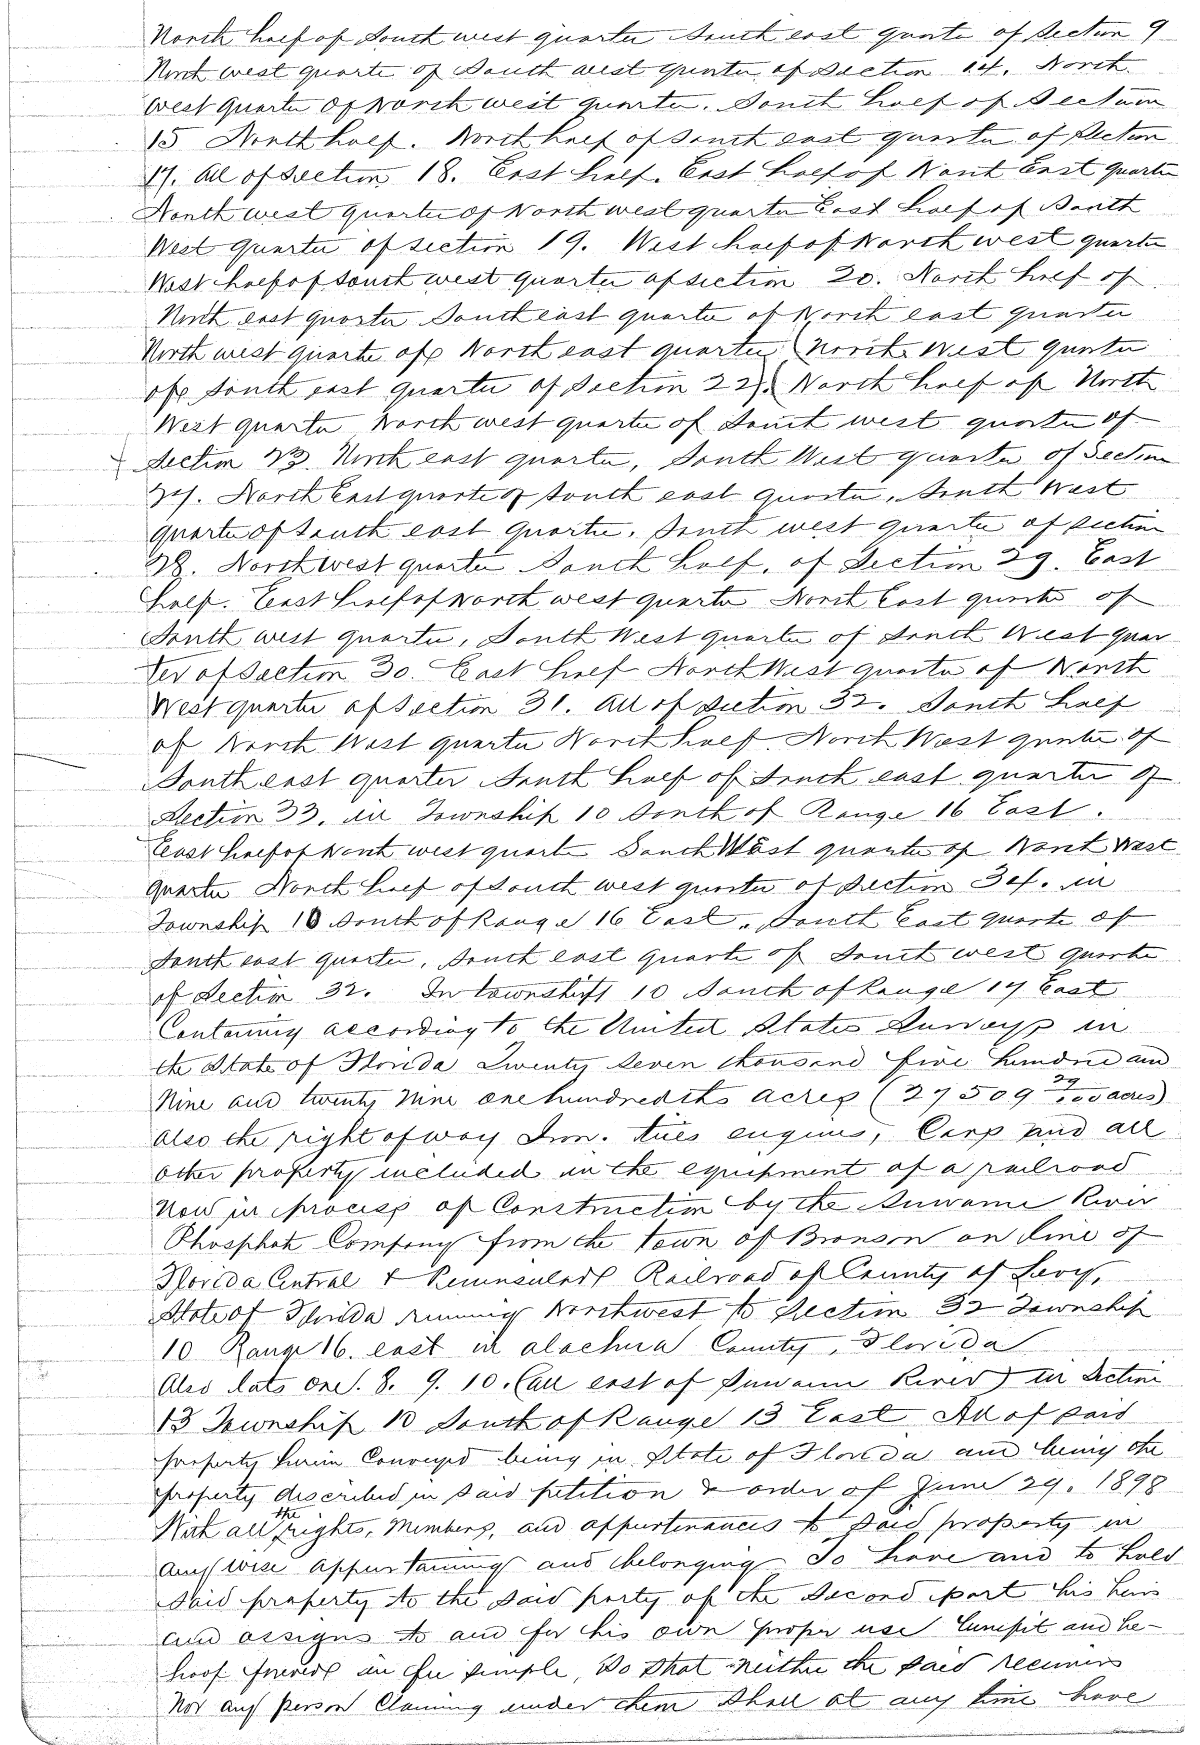 North half of South west quarter South east quarte of Section 9
North west quarte of South west quarter of Section 14. North
West Quarte of North west quarte. South half of Section
15 North half. North half of South east quarter of Section
17. All of Section 18. East half. East half of North East quarter
North west quarter of North west quarter East half of South
West quarter of section 19. West half of North west quarter
West half of South west quarter of section 20. North half of
North east quarter South east quarter of North east quarter
North west quarte of North east quarter (North West quarter
of South east quarter of Section 22). North half of North
West quarter North west quarter of South west quarter of
Section 23 North east quarter, South West quarter of Section
27. North East quarte of South east quarter, South West
quarter of South east quarter. South west quarter of section
28. North west quarter South half, of Section 29. East
half. East half of North west quarter North East quarter of
South west quarter, South West quarter of South West quar
ter of Section 30. East half North West quarter of North
West quarter of Section 31. All of Section 32. South half
of North West quarter North half North West quarter of
South east quarter South half of South east quarter of
Section 33. in Township 10 South of Range 16 East.
East half of North west quarte South West quarter of North West
quarter North half of South west quarter of Section 34. in
Township 10 South of Range 16 East. South East quarte of
South east quarter, South east quarte of South west quarte
of Section 32. In township 10 South of Range 17 East
Containing according to the United States Surveys in
the State of Florida Twenty seven thousand five hundred and
Nine and twenty nine one hundredths acres (27509 29/100 acres)
also the right of way Iron. ties engines, Cars and all
other property included in the equipment of a railroad
now in process of Construction by the Suwanne River
Phosphate Company from the town of Bronson on line of
Florida Central & Peninsular Railroad of County of Levy,
State of Florida running Northwest to Section 32 Township
10 Range 16. east in alachua County, Florida
Also lots one. 8. 9. 10. (all east of Suwann River) in Section
13 Township 10 South of Range 13 East All of said
property herein Conveyed being in State of Florida and being the
property described in said petition & order of June 29. 1898
With all the rights, Members, and appurtenances to said property in
any wise appurtaining and belonging To have and to hold
said property to the said party of the second part his heirs
and assigns to and for his own proper use benefit and be-
hoof forever in fee simple, So that neither the said receivers
Nor any person Claiming under them shall at any time have